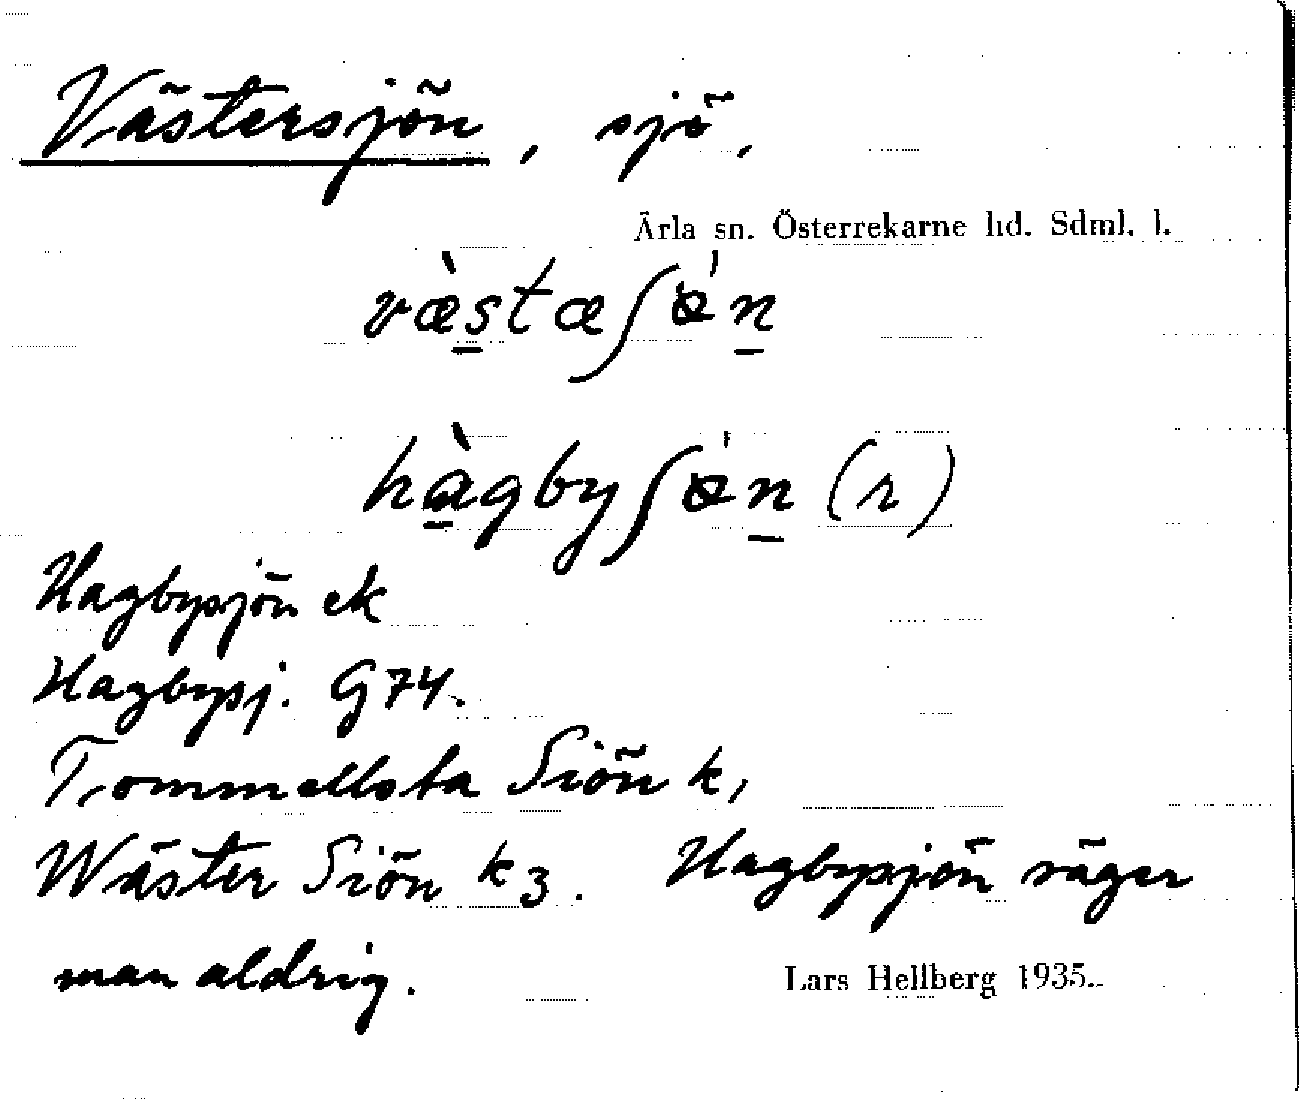 Västersjön, sjö,
Ärla sn. Österrekarne hd. Sdml. l.
væ̀stæʃǿn
hàgbyʃǿn (r)
Hagbysjön ek
Hagbysj. G74.
Tommellsta Siön k,
Wäster Siön k3. Hagbysjön säger
man aldrig.
Lars Hellberg 1935.